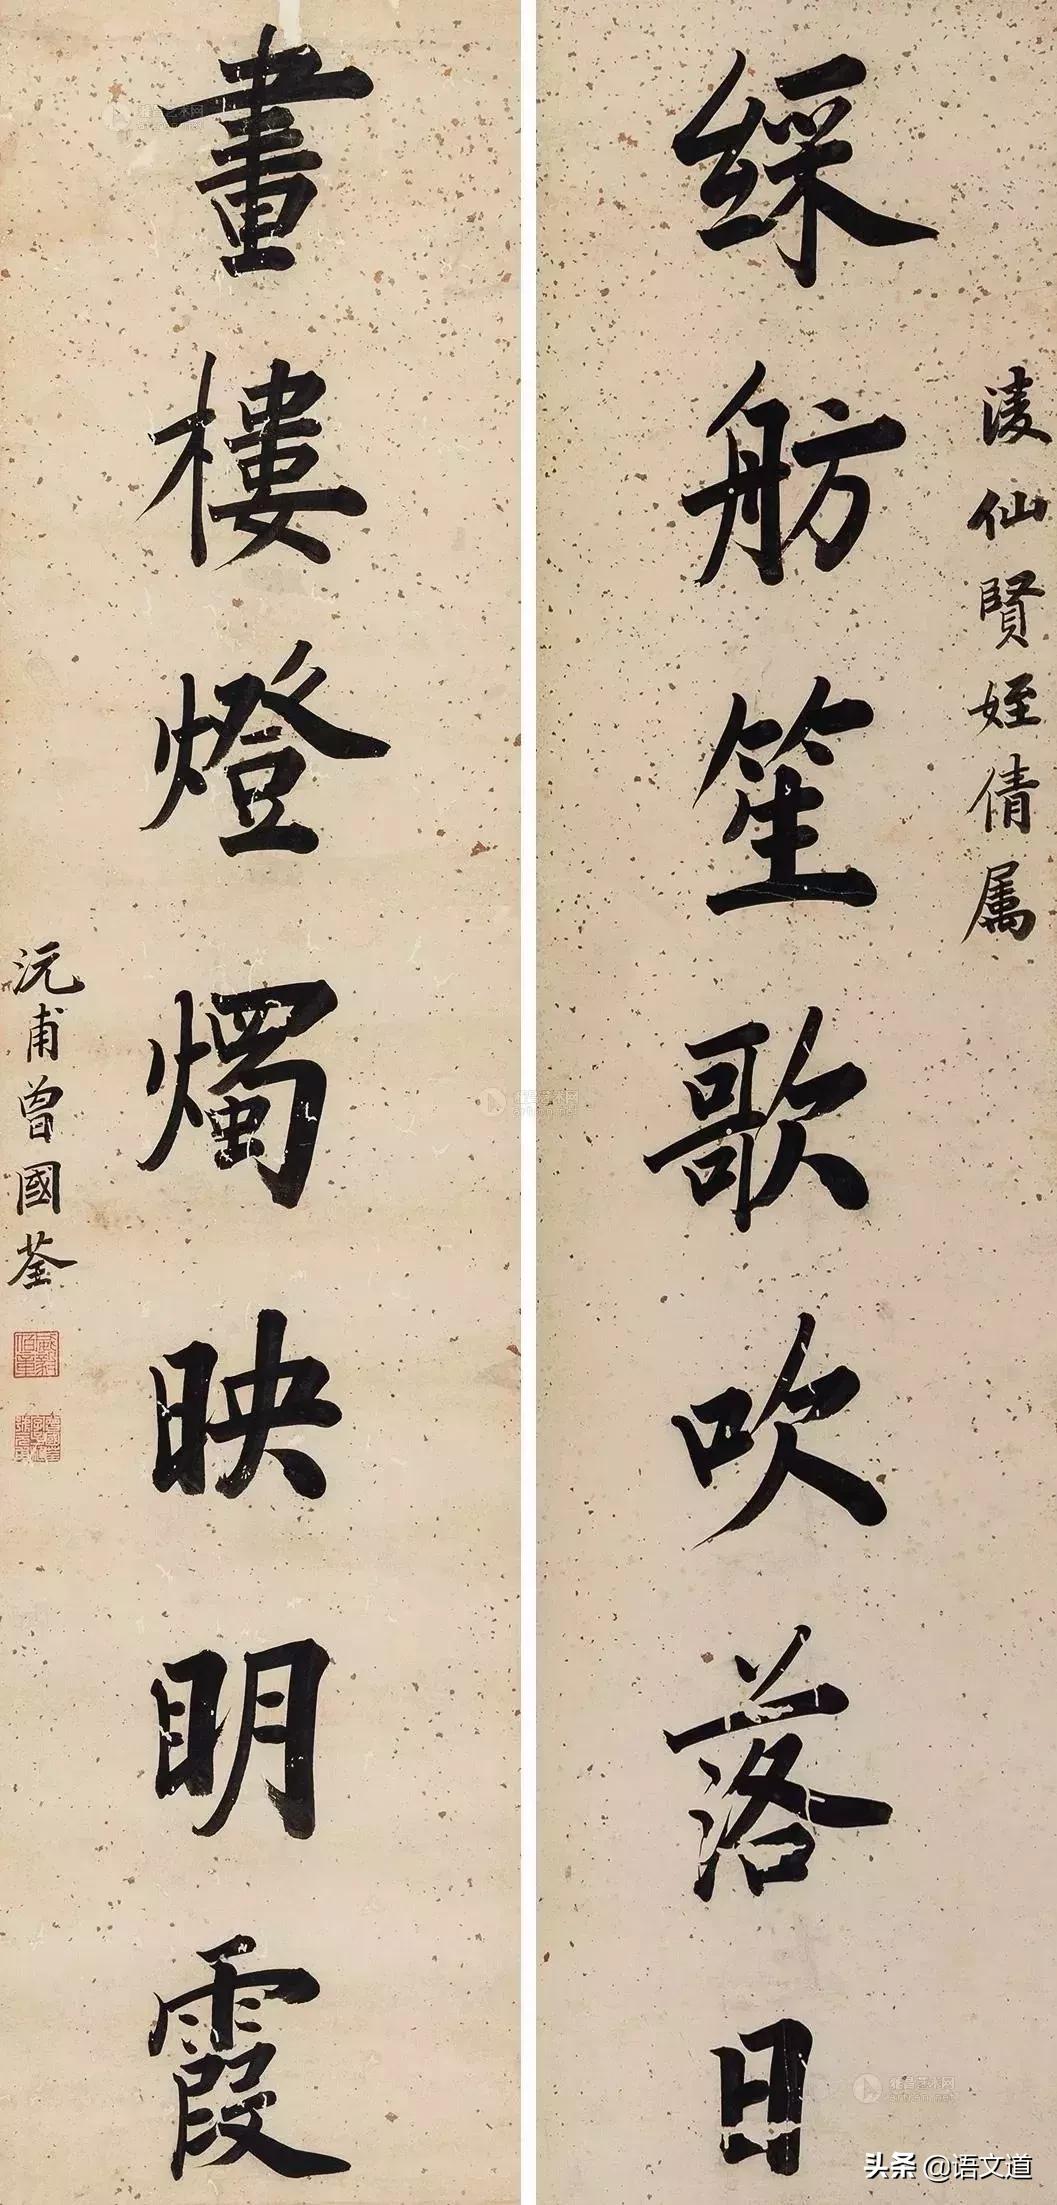 淩仙賢姪倩属
綵舫笙歌吹落日
畫樓燈燭映明霞
沅甫曾國荃
雅昌艺术网
头条 @语文道